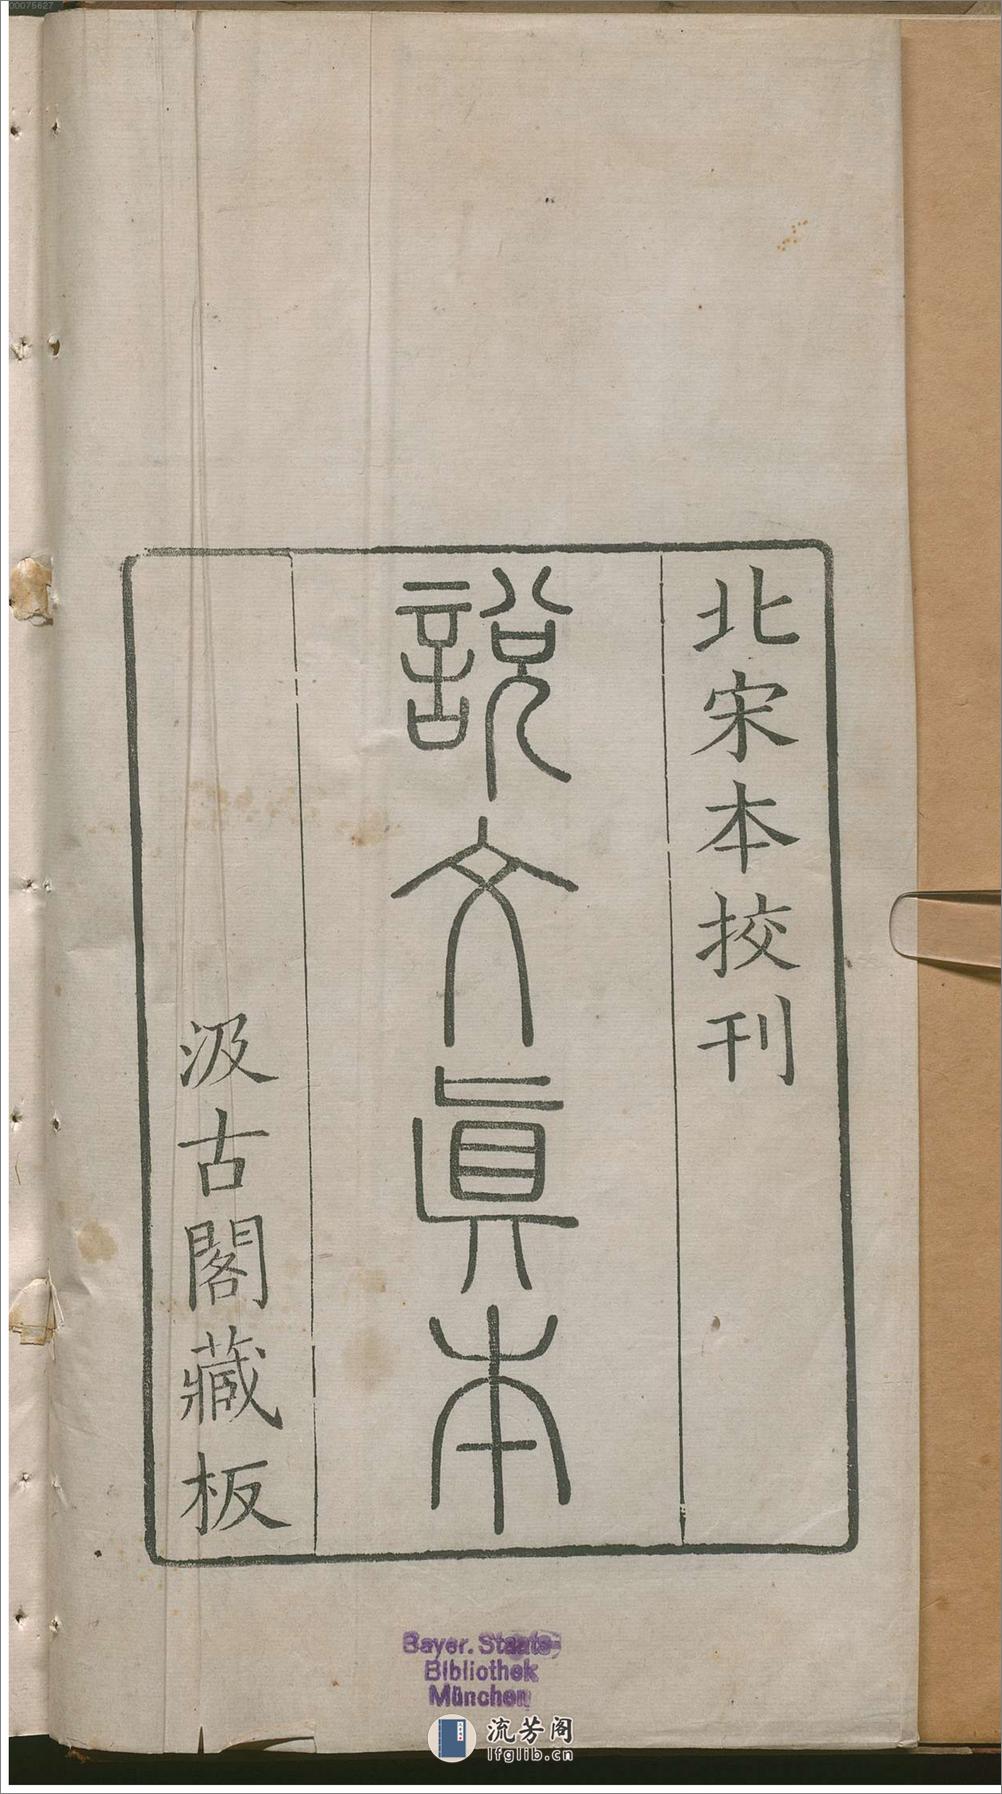 北宋本挍刊
說文眞本
汲古閣藏板
Bayer. Staats-
Bibliothek
München
流芳阁
lfglib.cn
00075627